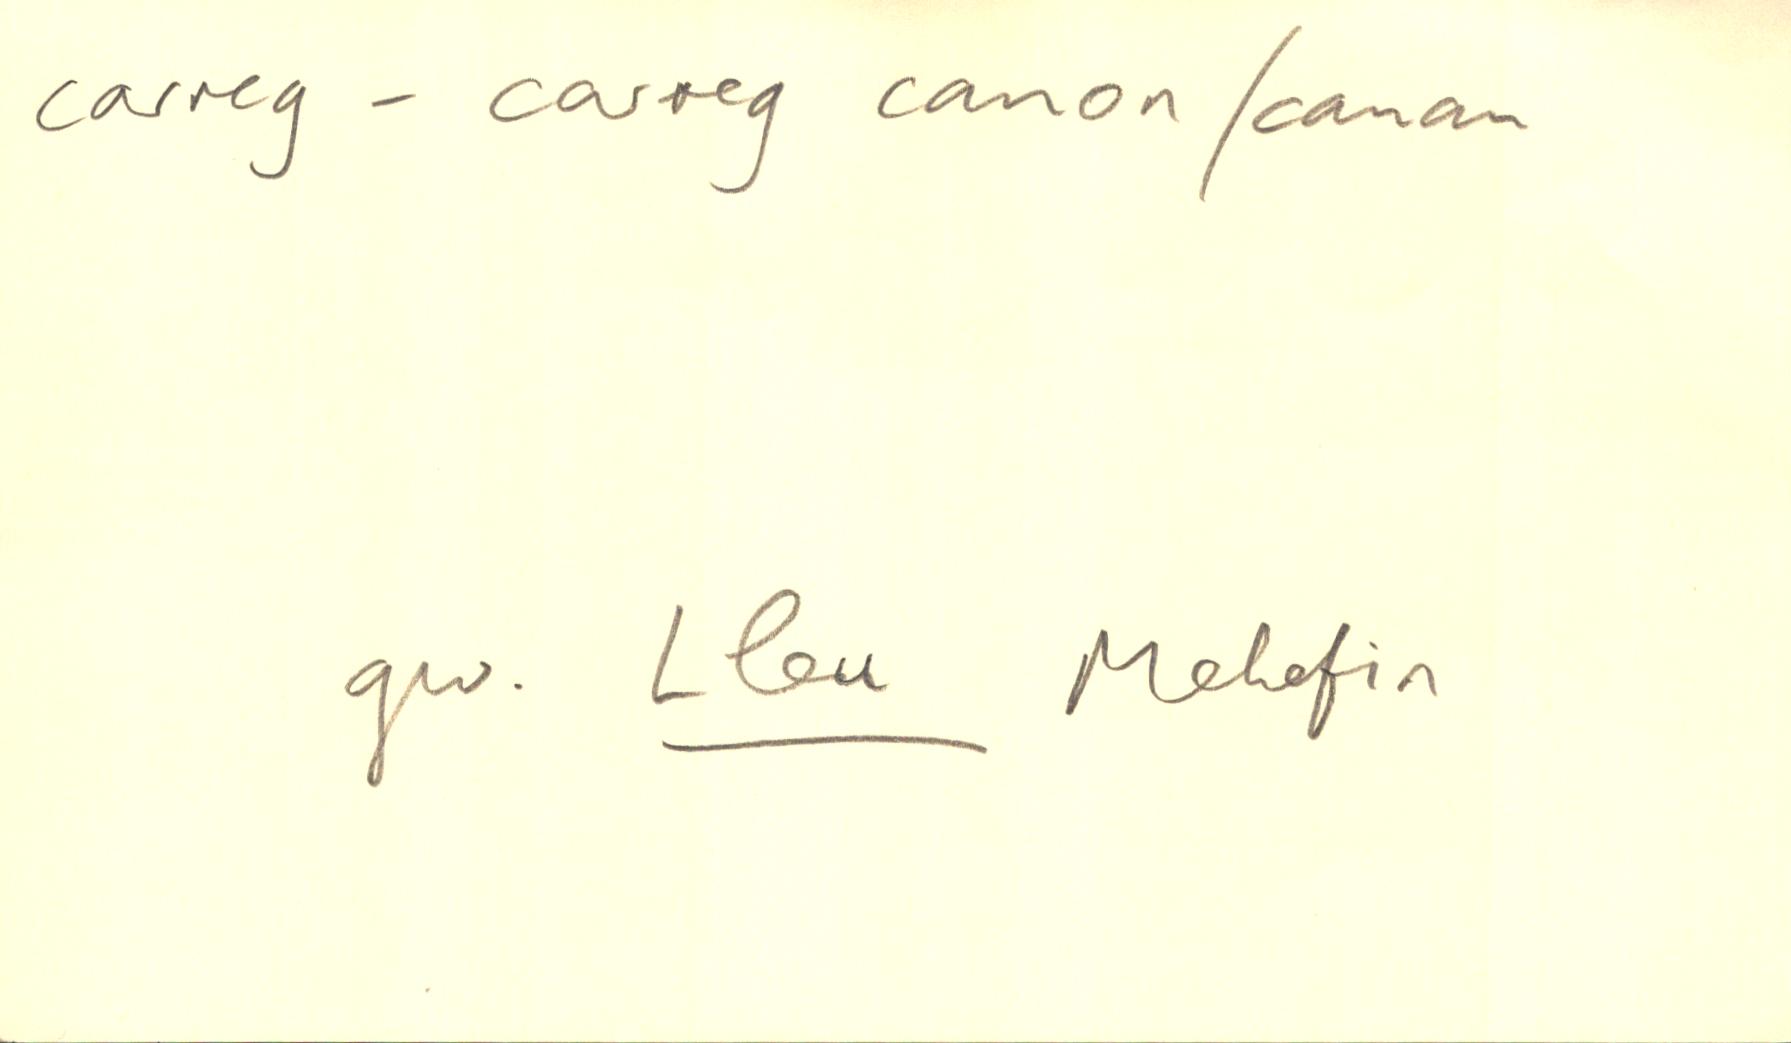 carreg - carreg canon/canan
gw. Lleu Mehefin